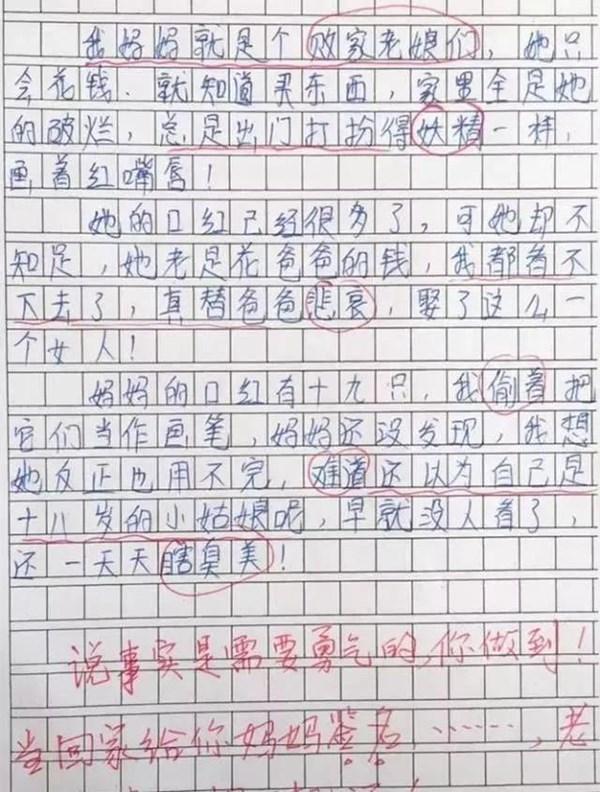 我妈妈就是个败家老娘们，她只
会花钱.就知道买东西，家里全是她
的破烂，总是出门打扮得妖精一样，
画着红嘴唇！
她的口红已经很多了，可她却不
知足，她老是花爸爸的钱，我都看不
下去了，真替爸爸悲哀，娶了这么一
个女人！
妈妈的口红有十九只，我偷着把
它们当作画笔，妈妈还没发现，我想
她反正也用不完，难道还以为自己是
十八岁的小姑娘呢，早就没人看了，
还一天天瞎臭美！
说事实是需要勇气的，你做到！
当回家给你妈妈签名……，老